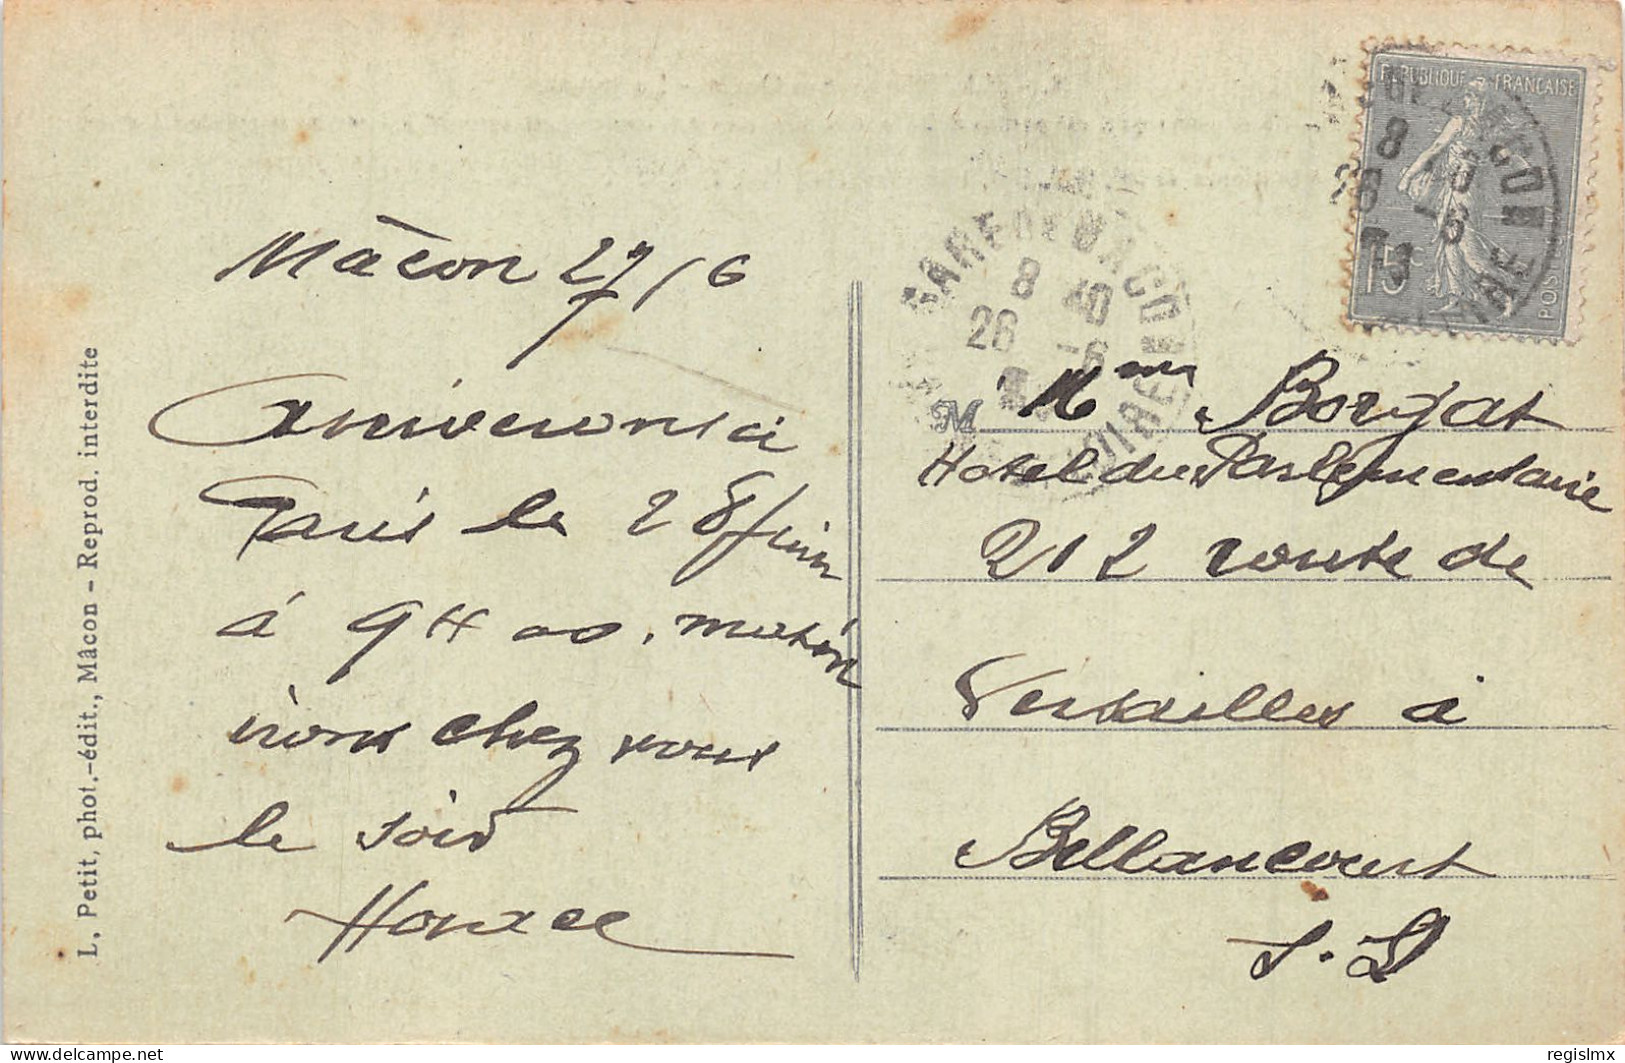 Mâcon 27/6
arriverons à
Paris le 28 juin
à 9H 00. matin
irons chez vous
le soir
Horace
L. Petit, phot.-édit., Mâcon - Reprod. interdite
REPUBLIQUE FRANÇAISE
15c
POSTES
GARE DE MACON
8 40
26 -6
M Mme Borjat
Hotel du Parlementaire
212 route de
Versailles à
Billancourt
S.O